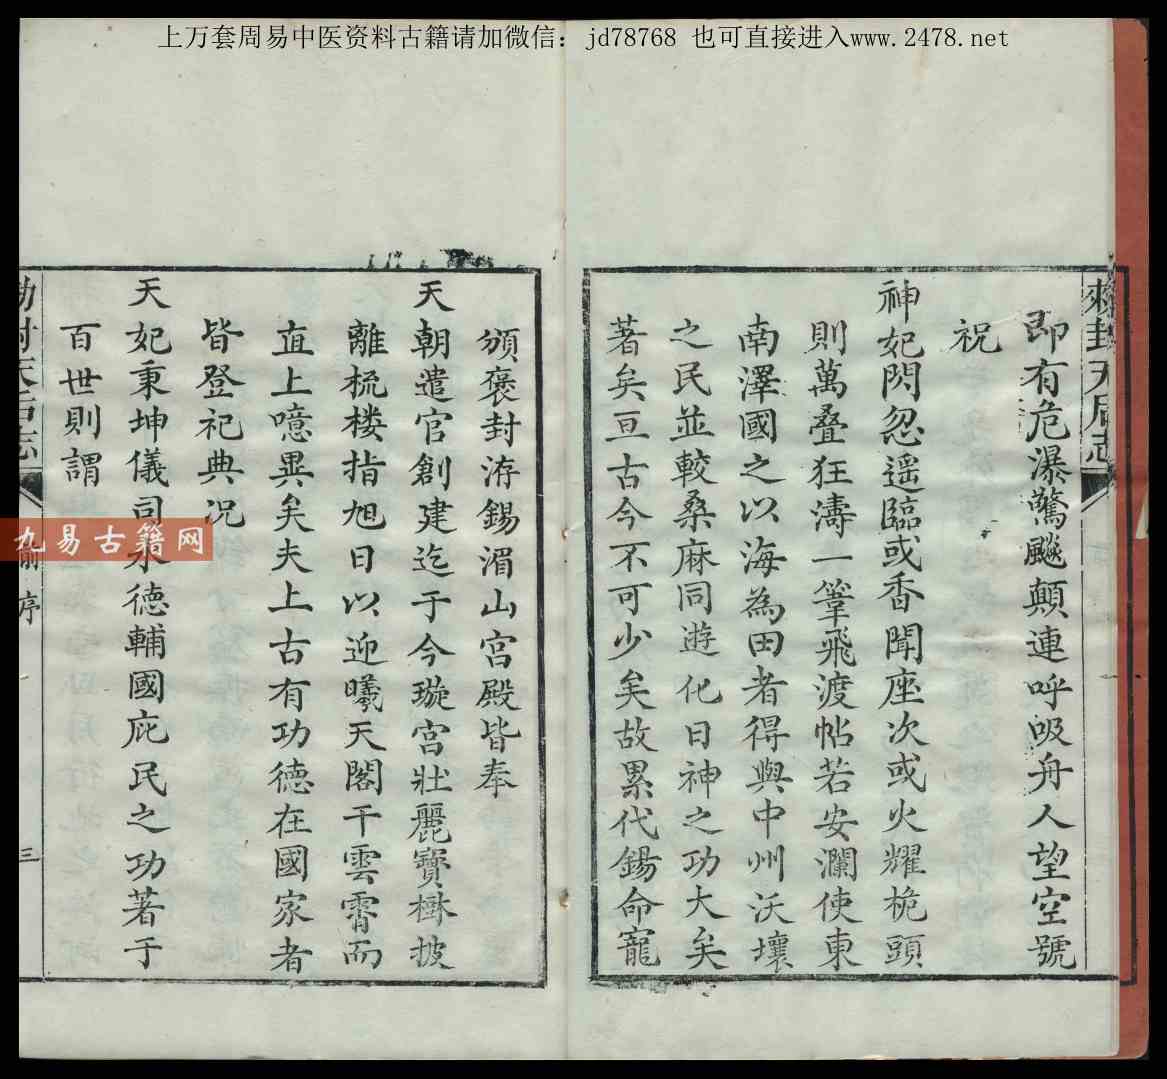 上万套周易中医资料古籍请加微信：jd78768 也可直接进入www.2478.net
敕封天后志
即有危瀑驚颷顛連呼吸舟人望空號
祝
神妃閃忽遥臨或香聞座次或火耀桅頭
則萬叠狂濤一葦飛渡帖若安瀾使東
南澤國之以海為田者得與中州沃壤
之民並較桑麻同遊化日神之功大矣
著矣亘古今不可少矣故累代錫命寵
頒褒封洊錫湄山宫殿皆奉
天朝遣官創建迄于今璇宫壯麗寶樹披
離梳楼指旭日以迎曦天閣干雲霄而
直上噫異矣夫上古有功德在國家者
皆登祀典况
天妃秉坤儀司水德輔國庇民之功著于
百世則謂
勅封天后志
前序
三
九易古籍网